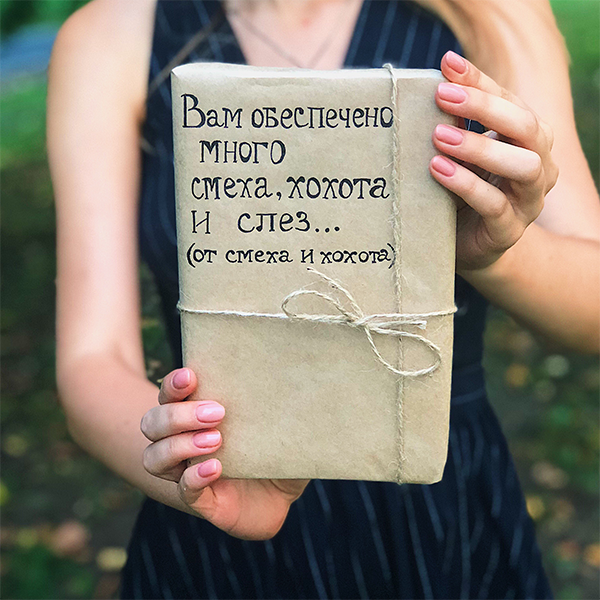 Вам обеспечено
много
смеха, хохота
и слез...
(от смеха и хохота)